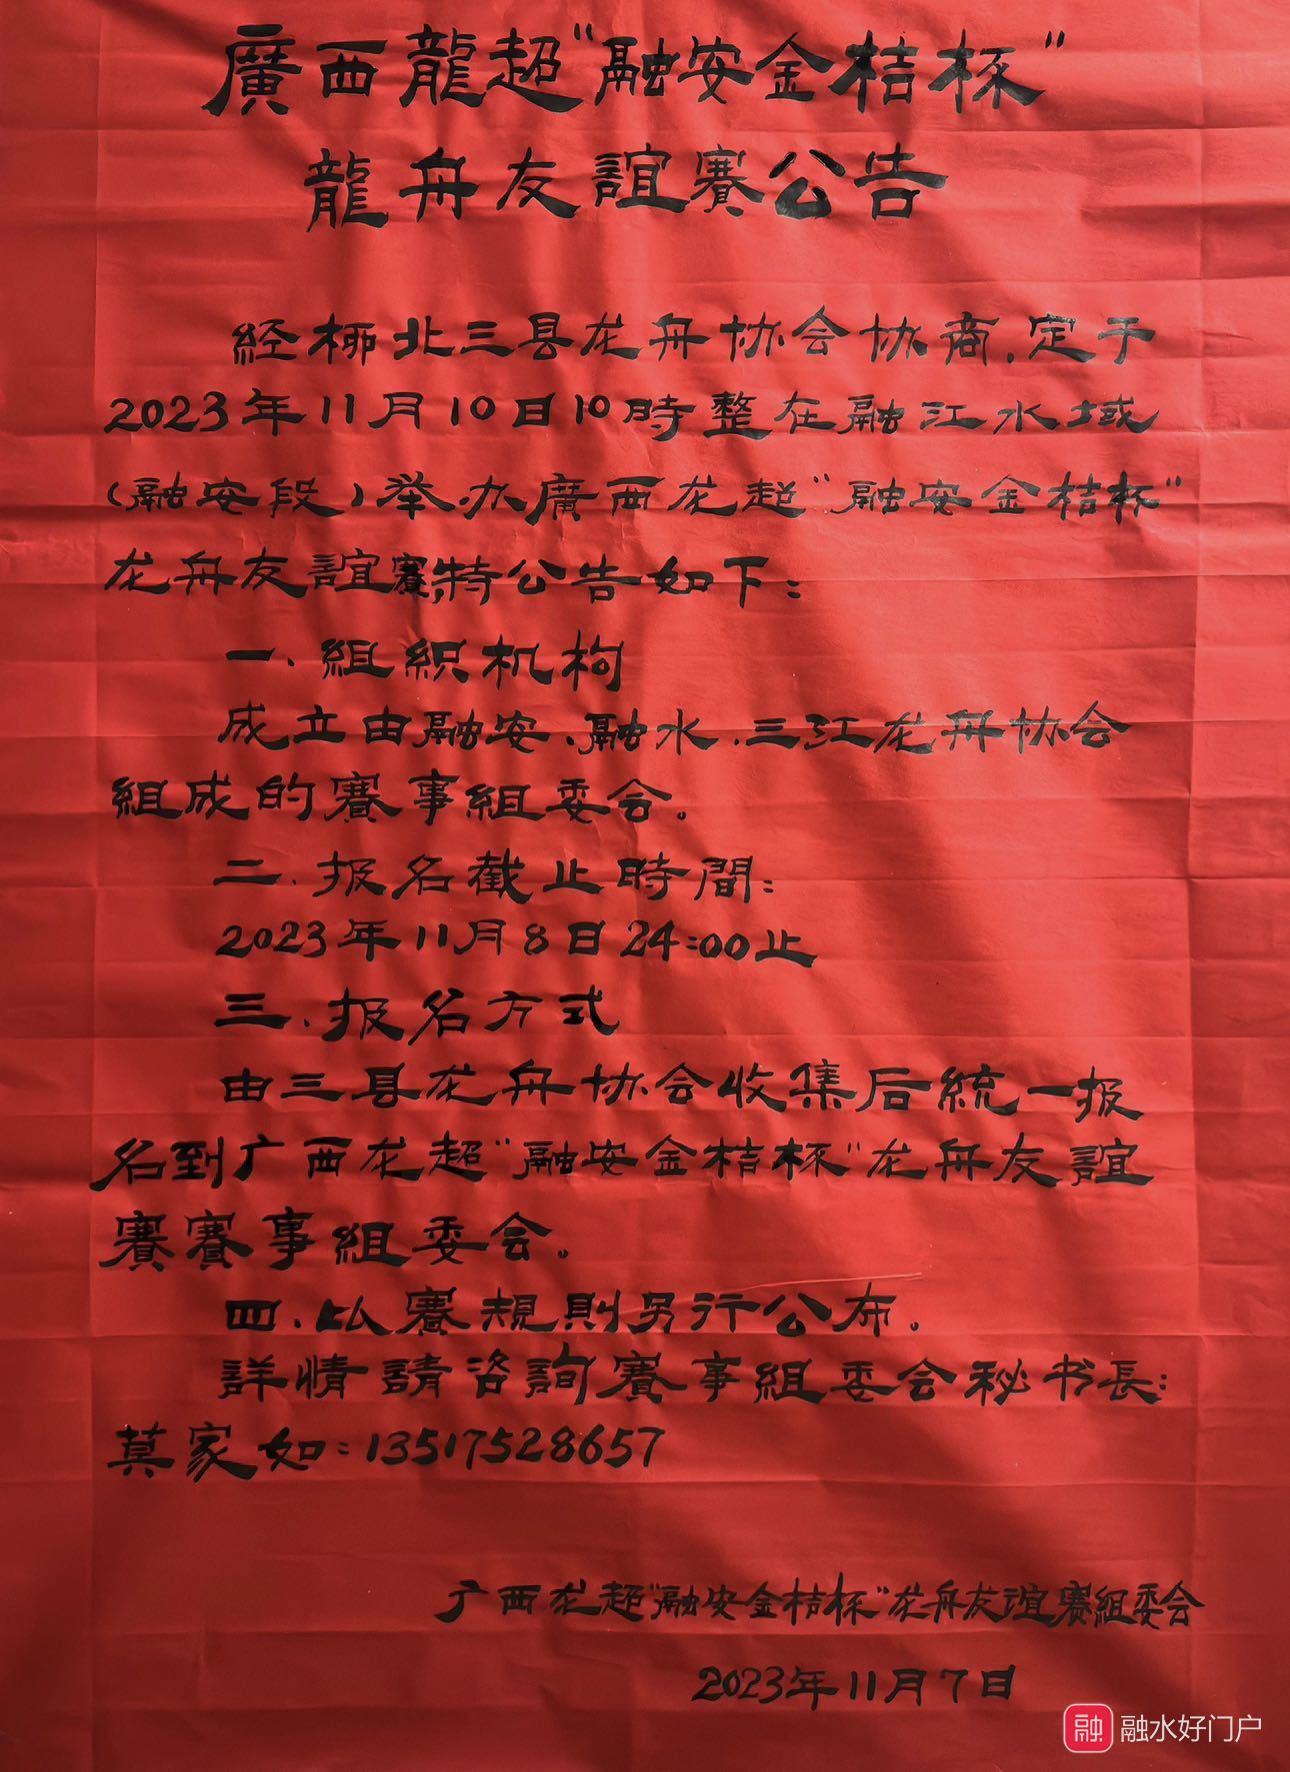 廣西龍超“融安金桔杯”
龍舟友誼賽公告
經柳北三县龙舟协会协商,定于
2023年11月10日10時整在融江水域
(融安段)举办廣西龙超“融安金桔杯”
龙舟友誼賽,特公告如下:
一、組織机构
成立由融安、融水、三江龙舟协会
組成的賽事組委会。
二、报名截止時間:
2023年11月8日24:00止
三、报名方式
由三县龙舟协会收集后統一报
名到广西龙超“融安金桔杯”龙舟友誼
賽賽事組委会。
四、比賽規則另行公布。
詳情請咨詢賽事組委会秘书長:
莫家如:13517528657
广西龙超“融安金桔杯”龙舟友谊赛組委会
2023年11月7日
融 融水好门户